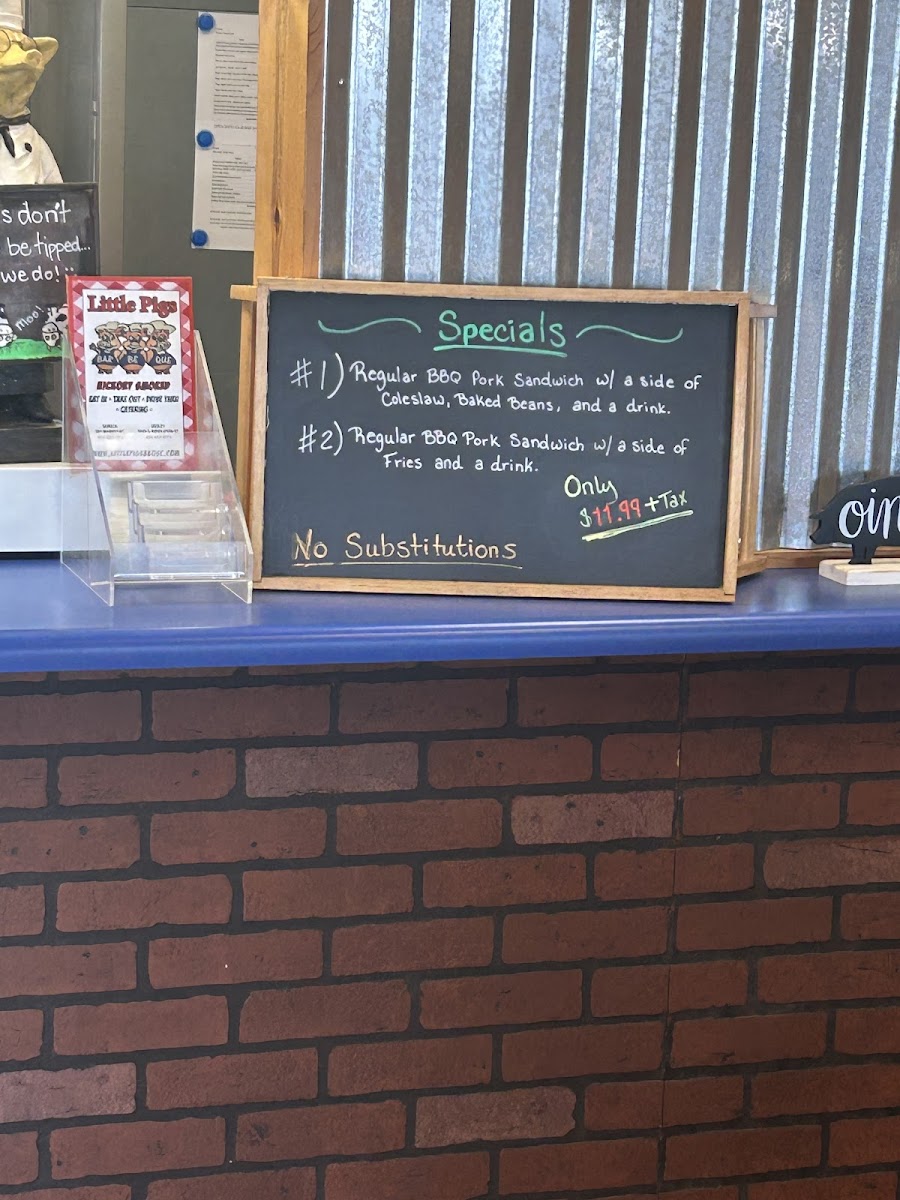 s don't
be tipped...
we do!
moo!
Little Pigs
BAR BE QUE
HICKORY SMOKED
EAT IN • TAKE OUT • DRIVE THRU
• CATERING •
Specials
#1) Regular BBQ Pork Sandwich w/ a side of
Coleslaw, Baked Beans, and a drink.
#2) Regular BBQ Pork Sandwich w/ a side of
Fries and a drink.
Only
$11.99 + Tax
No Substitutions
oin